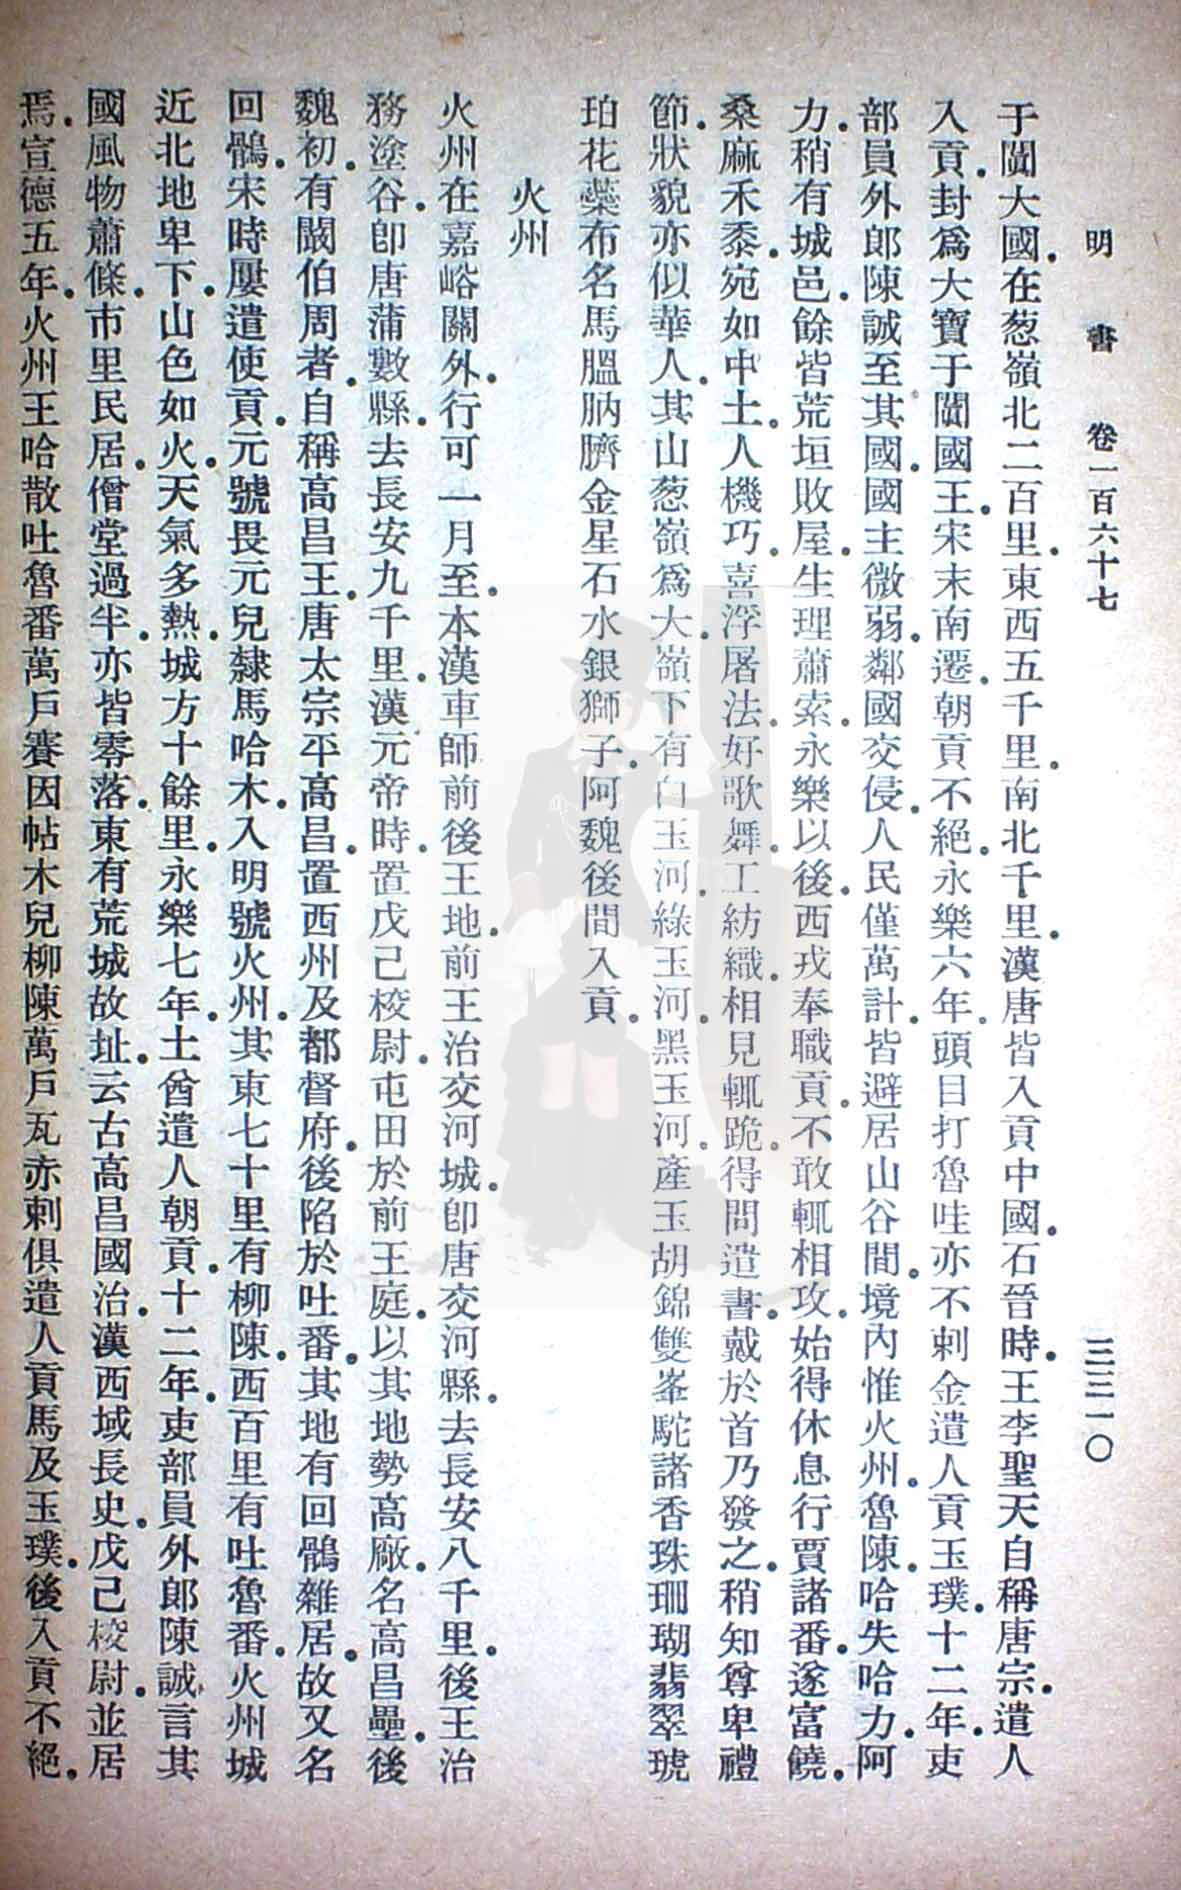 明書 卷一百六十七 三三一〇
于闐大國．在葱嶺北二百里．東西五千里．南北千里．漢唐皆入貢中國．石晉時．王李聖天自稱唐宗．遣人
入貢．封爲大寶于闐國王．宋末南遷．朝貢不絕．永樂六年．頭目打魯哇亦不剌金遣人貢玉璞．十二年．吏
部員外郎陳誠至其國．國主微弱．鄰國交侵．人民僅萬計．皆避居山谷間．境內惟火州．魯陳．哈失哈力．阿
力．稍有城邑．餘皆荒垣敗屋．生理蕭索．永樂以後．西戎奉職貢．不敢輒相攻．始得休息行賈諸番．遂富饒．
桑麻禾黍．宛如中土．人機巧．喜浮屠法．好歌舞．工紡織．相見輒跪．得問遺書．戴於首乃發之．稍知尊卑禮
節．狀貌亦似華人．其山葱嶺爲大．嶺下有白玉河．綠玉河．黑玉河．產玉胡錦雙峯駝諸香珠珊瑚翡翠琥
珀花蘂布名馬膃肭臍金星石水銀獅子．阿魏後間入貢．
火州
火州在嘉峪關外．行可一月至．本漢車師前後王地．前王治交河城．卽唐交河縣．去長安八千里．後王治
務塗谷．卽唐蒲數縣．去長安九千里．漢元帝時．置戊己校尉．屯田於前王庭．以其地勢高廠．名高昌壘．後
魏初．有闞伯周者．自稱高昌王．唐太宗平高昌．置西州及都督府．後陷於吐番．其地有回鶻雜居．故又名
回鶻．宋時屢遣使貢．元號畏元兒．隸馬哈木．入明號火州．其東七十里有柳陳．西百里有吐魯番．火州城
近北．地卑下．山色如火．天氣多熱．城方十餘里．永樂七年．土酋遣人朝貢．十二年．吏部員外郎陳誠言其
國風物蕭條．市里民居．僧堂過半．亦皆零落．東有荒城故址．云古高昌國治．漢西域長史．戊己校尉．並居
焉．宣德五年．火州王哈散吐魯番萬戶賽因帖木兒柳陳萬戶瓦赤剌俱遣人貢馬及玉璞．後入貢不絕．